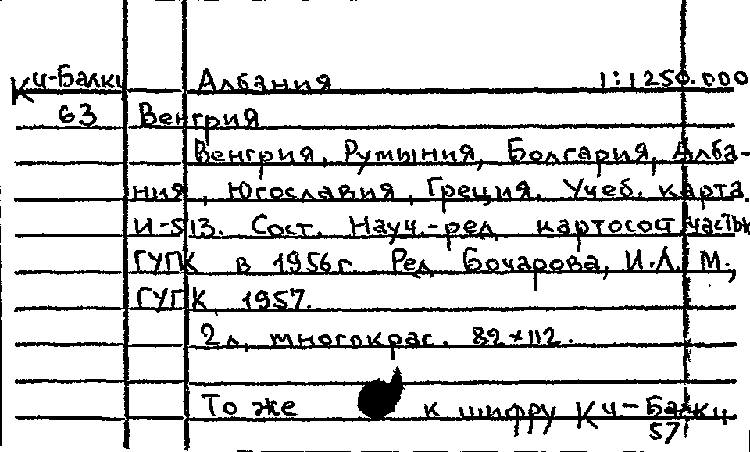 Кч-Балки Албания 1:1250.000
63 Венгрия
Венгрия, Румыния, Болгария, Алба-
ния, Югославия, Греция. Учеб. карта.
И-513. Сост. Науч.-ред. картосост частью
ГУГК в 1956г. Ред Бочарова, И.Л. М.,
ГУГК, 1957.
2л, многокрас. 82×112.
То же к шифру Кч-Балки
57